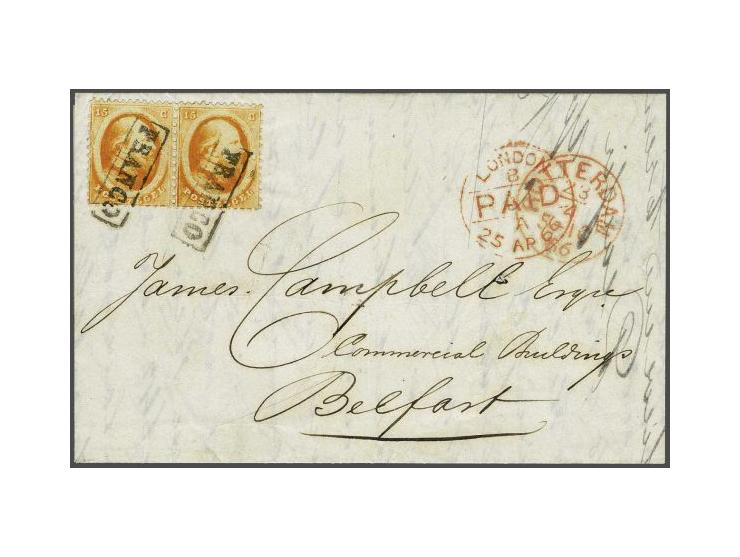 15 C 15 C
POSTZEGEL POSTZEGEL
FRANCO FRANCO
LONDON
PAID
25 AP 66
ROTTERDAM
James. Campbell Esqre
Commercial Buildings
Belfast